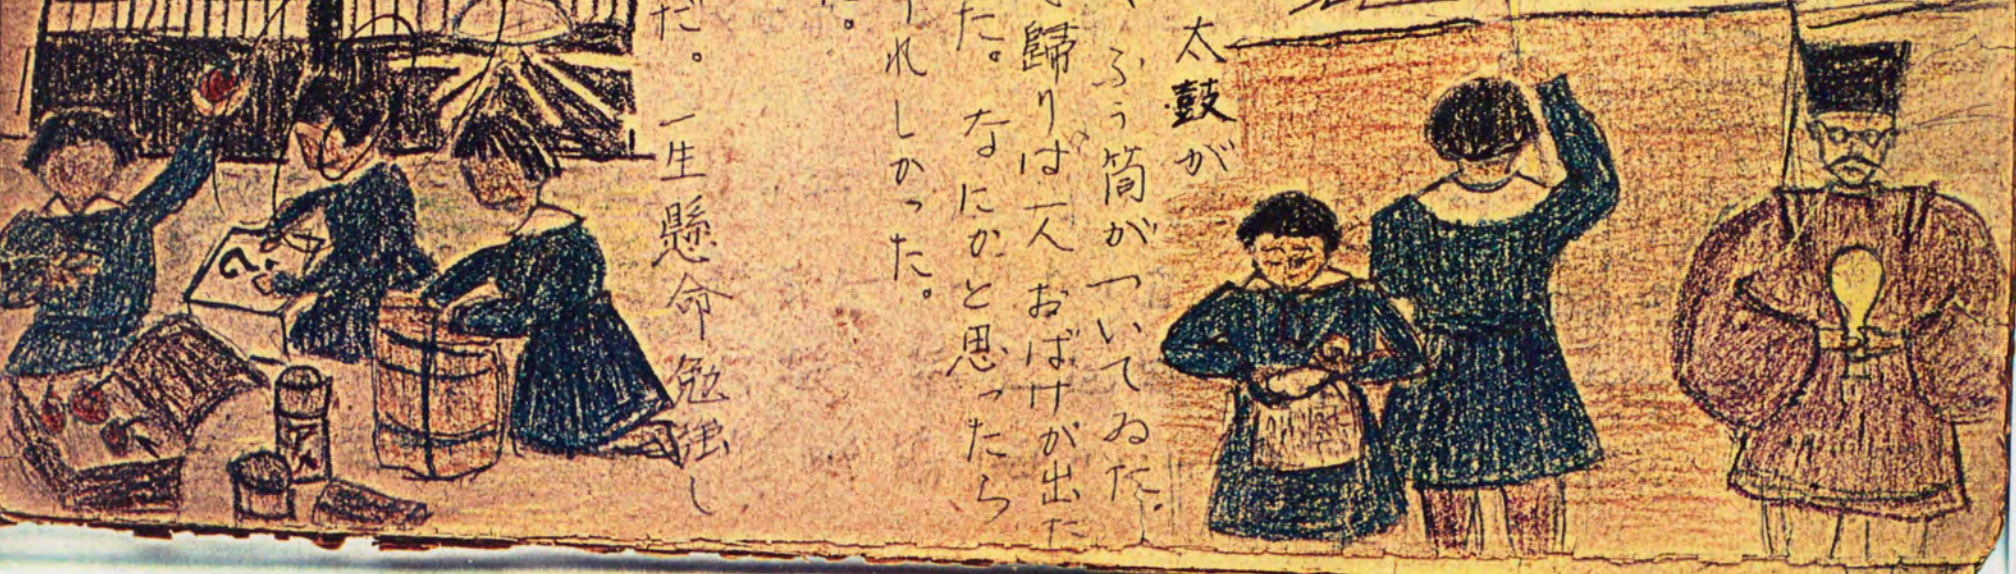 太鼓が
ふう筒がついてゐた。
歸りは一人おばけが出た
た。なにかと思ったら
れしかった。
た。
だ。一生懸命勉強し
?